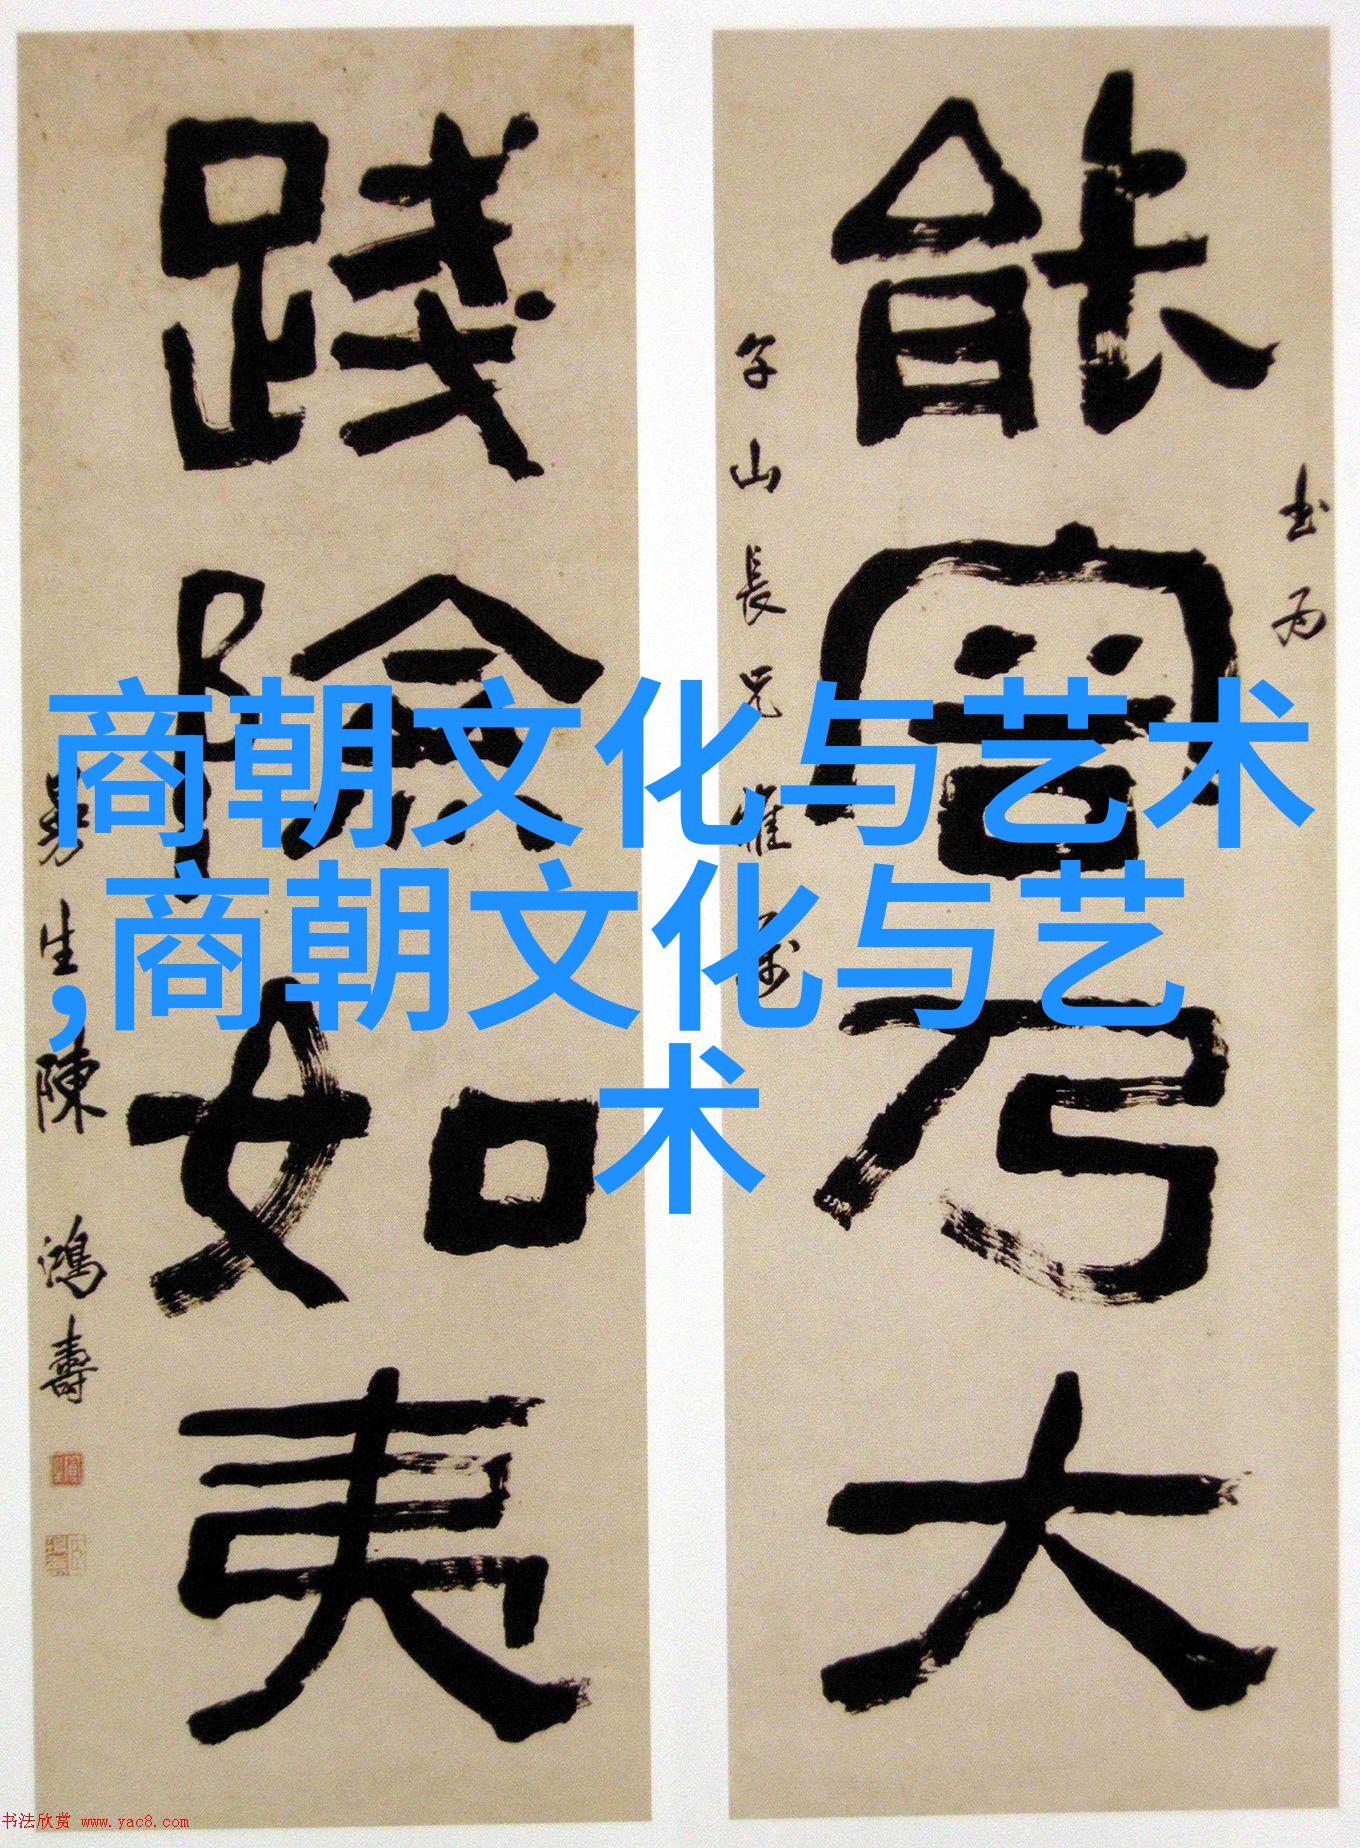 书为
能
乃大
山長兄雅屬
踐險如夷
曼生陳鴻壽
商朝文化与艺术
,商朝文化与艺
术
书法欣赏 www.yac8.com